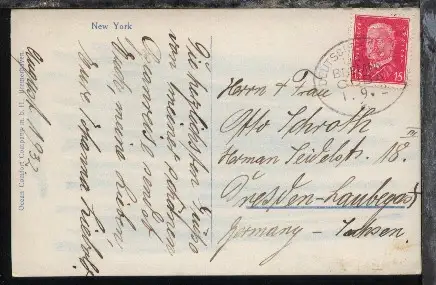 New York
Die herzlichsten Grüße
von meiner schönen
Amreise sendet
Euch, meine Lieben,
Eure Johanna
August 1932
Ocean Comfort Company m. b. H., Bremerhaven
15 15
Herrn & Frau
Otto Schroth
Herman Seidelstr. 18. III
Dresden-Laubegast
Germany - Sachsen.